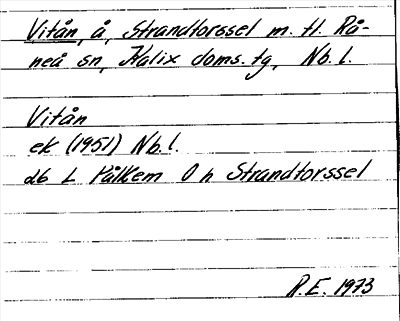 Vitån, å, Strandtorssel m. fl. Rå-
neå sn, Kalix doms. tg, Nb. l.
Vitån
ek (1951) Nb. l.
db L Pålkem O h Strandtorssel
R.E. 1973